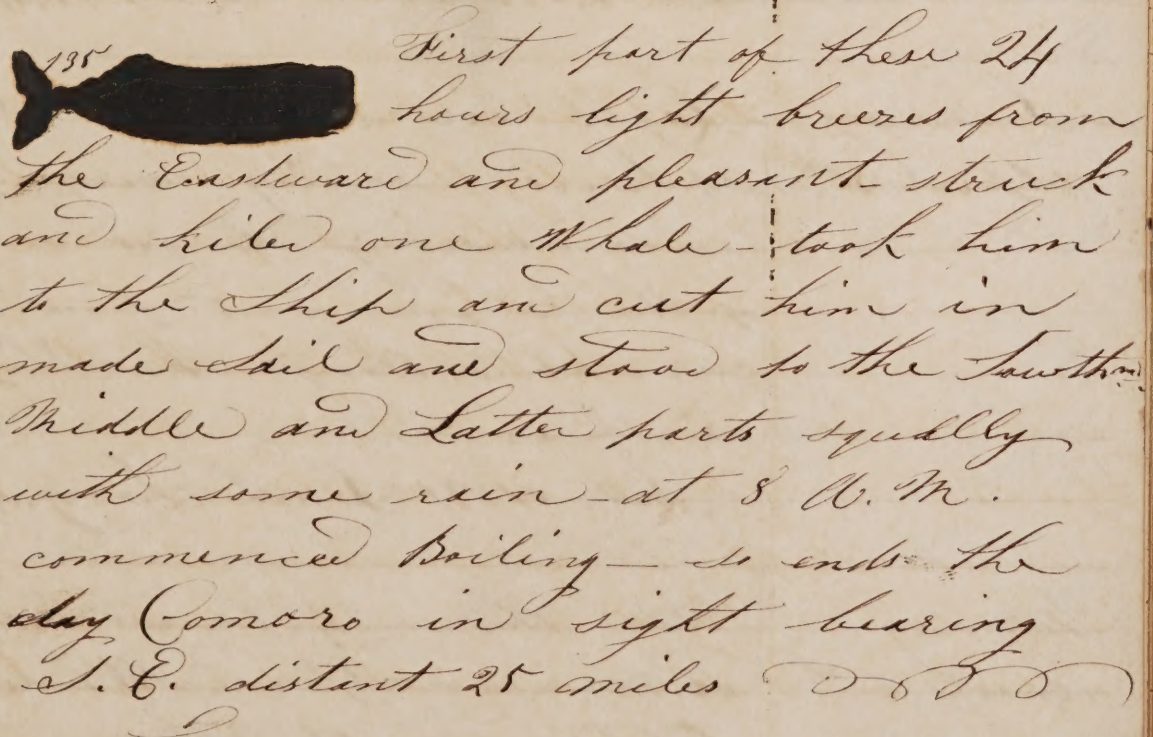 135
First part of these 24
hours light breezes from
the Eastward and pleasant - struck
and kiled one Whale - took him
to the Ship and cut him in
made Sail and stood to the Southrd
Middle and Latter parts squally
with some rain - at 8 A.M.
commenced Boiling - so ends the
day Comoro in sight bearing
S.E. distant 25 miles